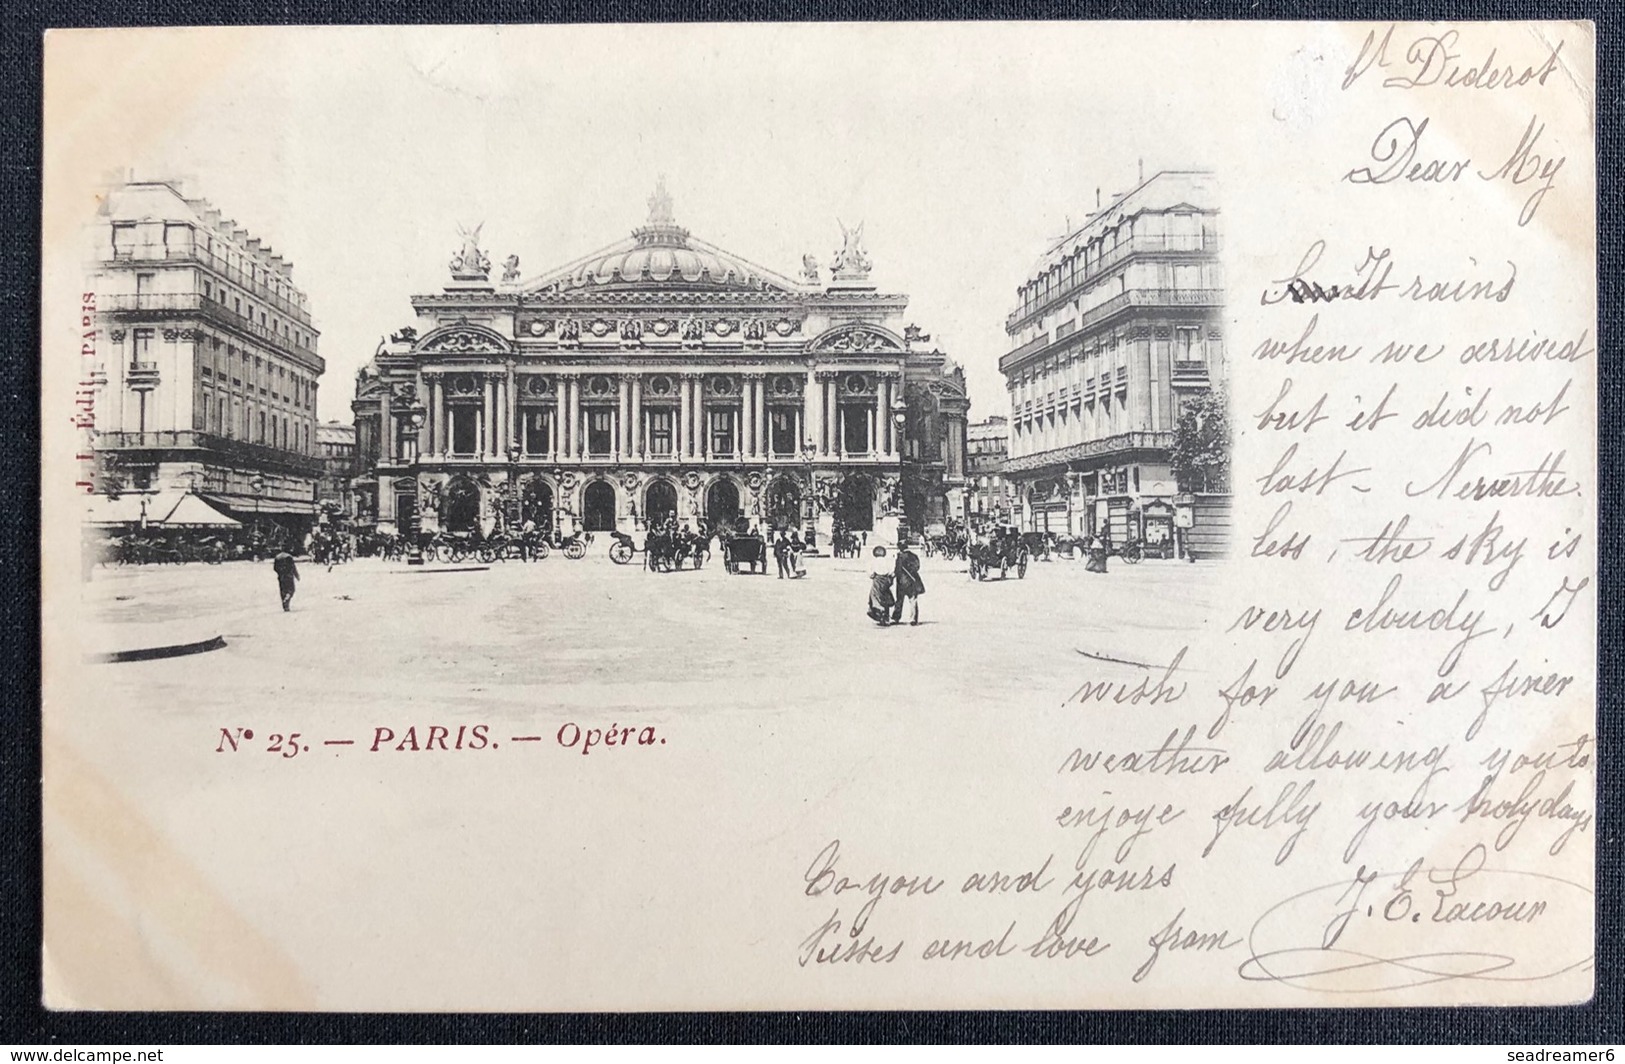 Bd Diderot
Dear My
It rains
when we arrived
but it did not
last - Neverthe
less, the sky is
very cloudy, I
wish for you a finer
weather allowing you to
enjoye fully your holydays
To you and yours
Kisses and love from
J. E. Lacour
J. L. Édit., PARIS
N° 25. — PARIS. — Opéra.
www.delcampe.net
seadreamer6